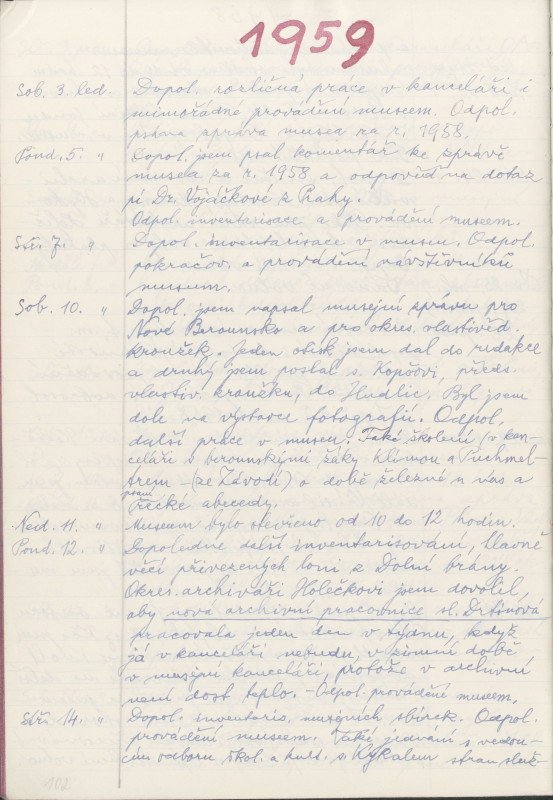 1959
Sob. 3. led. Dopol. rozličná práce v kanceláři i
mimořádné provádění museem. Odpol.
psána správa musea za r. 1958.
Pond. 5. " Dopol. jsem psal komentář ke správě
musea za r. 1958 a odpověď na dotaz
pí Dr. Vojáčkové z Prahy.
Odpol. inventarisace a provádění museem.
Stř. 7. " Dopol. inventarisace v museu. Odpol.
pokračov. a provádění návštěvníků
museum.
Sob. 10. " Dopol. jsem napsal musejní správu pro
Nové Berounsko a pro okres. vlastivěd.
kroužek. Jeden otisk jsem dal do redakce
a druhý jsem poslal s. Kopovi, předs.
vlastiv. kroužku, do Hudlic. Byl jsem
dole na výstavce fotografií. Odpol.
další práce v museu. Také školení (v kan-
celáři s berounskými žáky Klímou a Puchmel-
trem (ze Závodí) o době železné u nás a
psaní
řecké abecedy.
Ned. 11. " Museum bylo otevřeno od 10 do 12 hodin.
Pond. 12. " Dopoledne další inventarisování, hlavně
věcí přivezených loni z Dolní brány.
Okres. archiváři Holečkovi jsem dovolil,
aby nová archivní pracovnice sl. Drtinová
pracovala jeden den v týdnu, když
já v kanceláři nebudu, v zimní době
v musejní kanceláři, protože v archivní
není dost teplo. - Odpol. provádění museem.
Stř. 14. " Dopol. inventaris. musejních sbírek. Odpol.
provádění museem. Také jednání s vedou-
cím odboru škol. a kult. s. Kýkalem stran
102